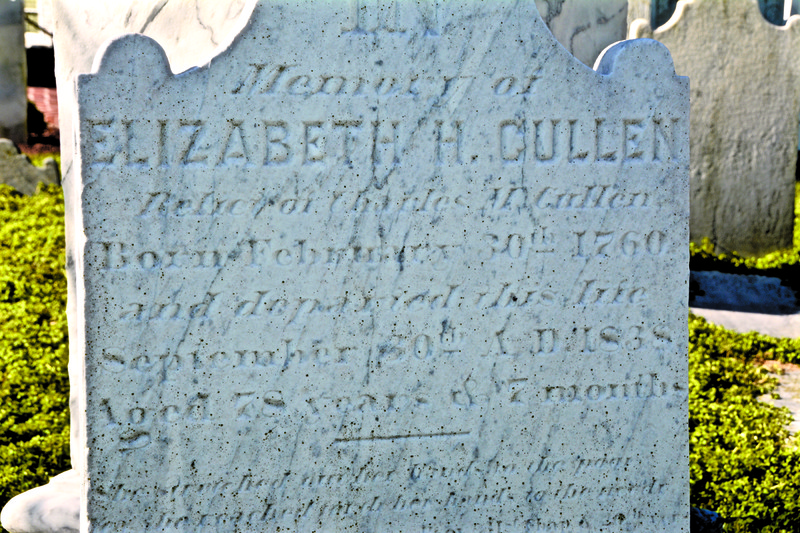 IN
Memory of
ELIZABETH H. CULLEN
Relict of Charles M. Cullen
Born February 30th 1760
and departed this life
September 30th A.D. 1838
Aged 78 years & 7 months
She stretched out her hand to the poor
she reached forth her hands to the needy